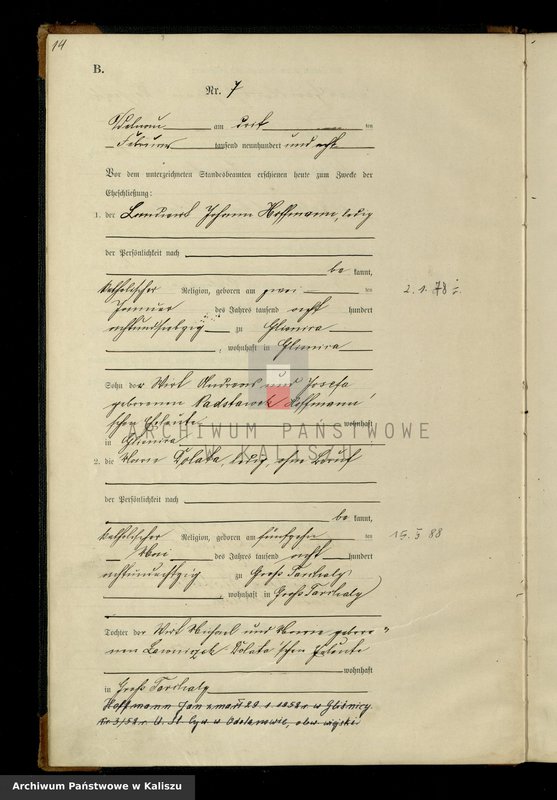 14
B.
Nr. 7
Adelnau am drei ten
Februar tausend neunhundert und acht
Vor dem unterzeichneten Standesbeamten erschienen heute zum Zwecke der
Eheschließung:
1. der Landwirt Johann Hoffmann, ledig
der Persönlichkeit nach
be kannt,
katholischer Religion, geboren am zwei ten
2. 1. 78
Januar des Jahres tausend acht hundert
achtundsiebzig zu Glisnica
, wohnhaft in Glisnica
Sohn der Wirt Andreas und Josefa
geborenen Radstawek Hoffmann'
schen Eheleute wohnhaft
in Glisnica
ARCHIWUM PAŃSTWOWE
W KALISZU
2. die Dolata, ledig, ohne Beruf
der Persönlichkeit nach
be kannt,
katholischer Religion, geboren am fünfzehn ten
15. 5 88
Mai des Jahres tausend acht hundert
achtundachtzig zu Groß Tarchaly
, wohnhaft in Groß Tarchaly
Tochter der Wirt Michael und gebore"
nen Dolata'schen Eheleute
wohnhaft
in Groß Tarchaly
Hoffmann Jan zmarł 29 1 1958 r w Glisnicy
Nr 3/58 r U. St. Cyw w Odolanowie,
Archiwum Państwowe w Kaliszu